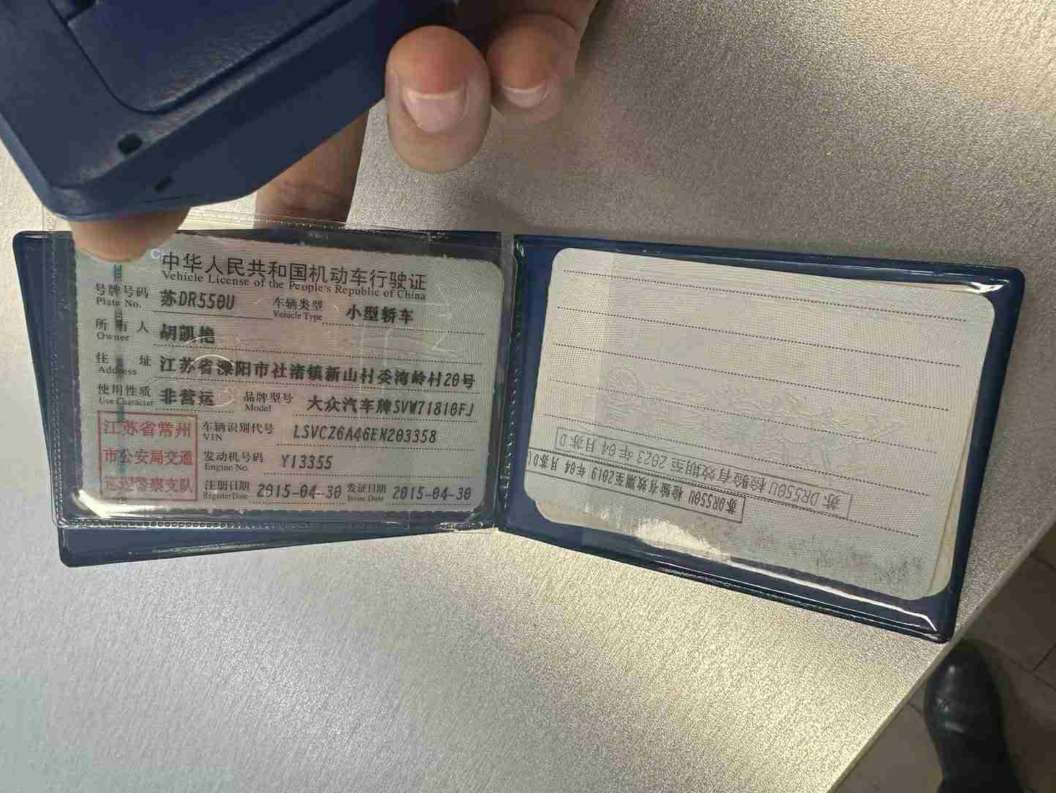 中华人民共和国机动车行驶证
Vehicle License of the People's Republic of China
号牌号码 苏DR550U 车辆类型 小型轿车
Plate No. Vehicle Type
所有人 胡凯艳
Owner
住址 江苏省溧阳市社渚镇新山村委湾岭村20号
Address
使用性质 非营运 品牌型号 大众汽车牌SVW71810FJ
Use Character Model
江苏省常州
市公安局交通
巡逻警察支队
车辆识别代号 LSVCZ6A46EN203358
VIN
发动机号码 Y13355
Engine No.
注册日期 2015-04-30 发证日期 2015-04-30
Register Date Issue Date
苏DR550U 检验有效期至2019年04月苏D
苏DR550U 检验有效期至2023年04月苏D